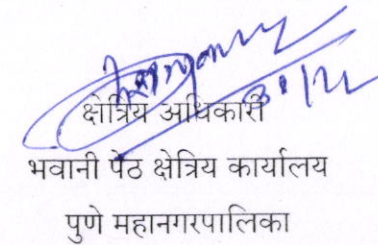 क्षेत्रिय अधिकारी
भवानी पेठ क्षेत्रिय कार्यालय
पुणे महानगरपालिका